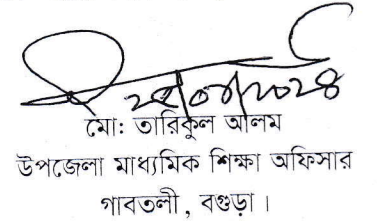 মো: তারিকুল আলম
উপজেলা মাধ্যমিক শিক্ষা অফিসার
গাবতলী, বগুড়া।